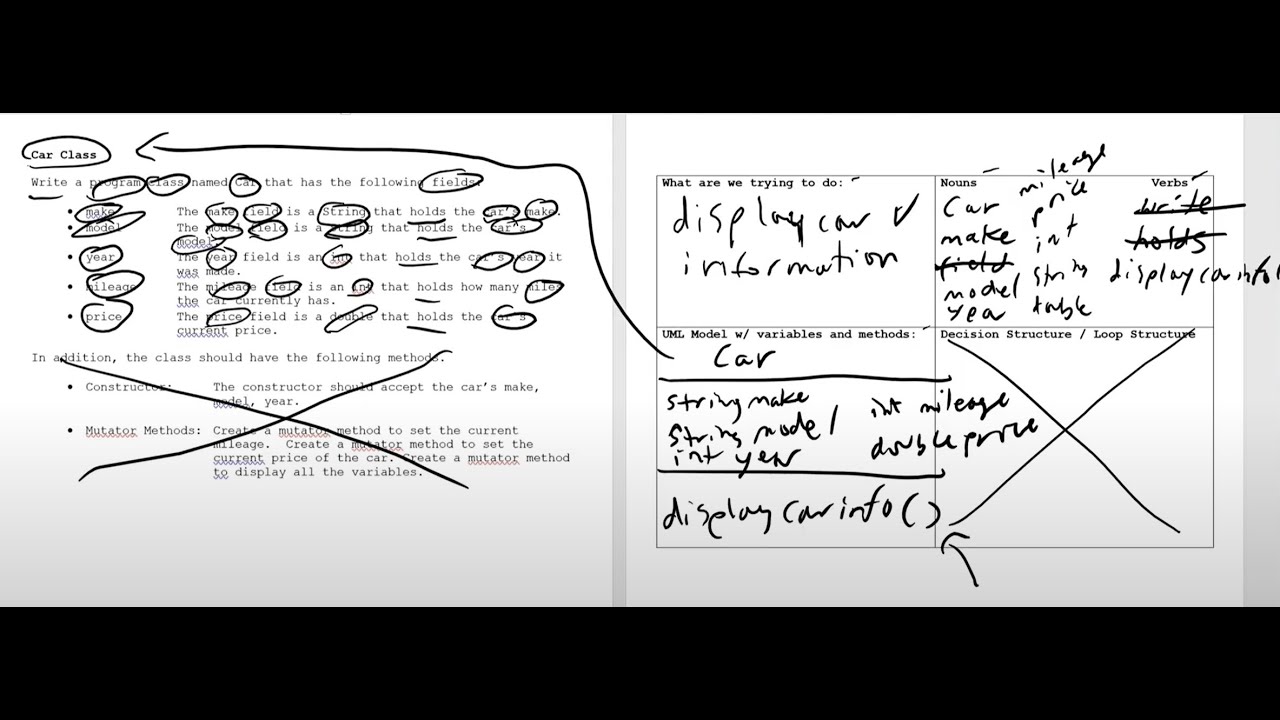 Car Class
Write a program class named Car that has the following fields:
• make The make field is a String that holds the car's make.
• model The model field is a String that holds the car's
model.
• year The year field is an int that holds the car's year it
was made.
• mileage The mileage field is an int that holds how many miles
the car currently has.
• price The price field is a double that holds the car's
current price.
In addition, the class should have the following methods.
• Constructor: The constructor should accept the car's make,
model, year.
• Mutator Methods: Create a mutator method to set the current
mileage. Create a mutator method to set the
current price of the car. Create a mutator method
to display all the variables.
What are we trying to do:
display car
information
Nouns
Car
make
field
model
year
mileage
price
int
string
table
Verbs
write
holds
displaycarinfo
UML Model w/ variables and methods:
Car
string make
string model
int year
int mileage
double price
displaycarinfo()
Decision Structure / Loop Structure